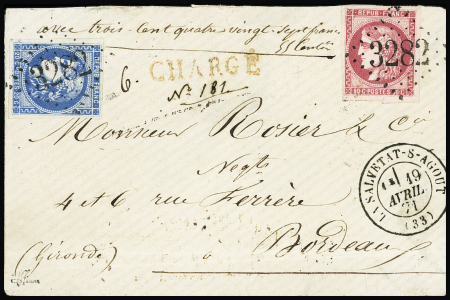 avec trois-cent quatre vingt-sept francs
55 Centimes
REPUB. FRANC.
3282
3282
6.
CHARGÉ
N° 181
Monsieur Rosier & Cie
Negts
4 et 6, rue Ferrère
Bordeaux
(Gironde)
LA SALVETAT-S-AGOUT
19
AVRIL
71
(33)
POSTES